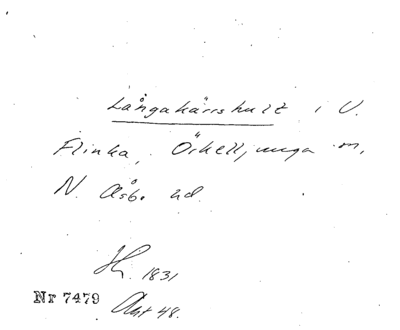 Långakärrshult i V.
Flinka, Örkelljunga sn,
N. Åsbo hd.
Sk. 1831
Nr 7479 Akt 48.